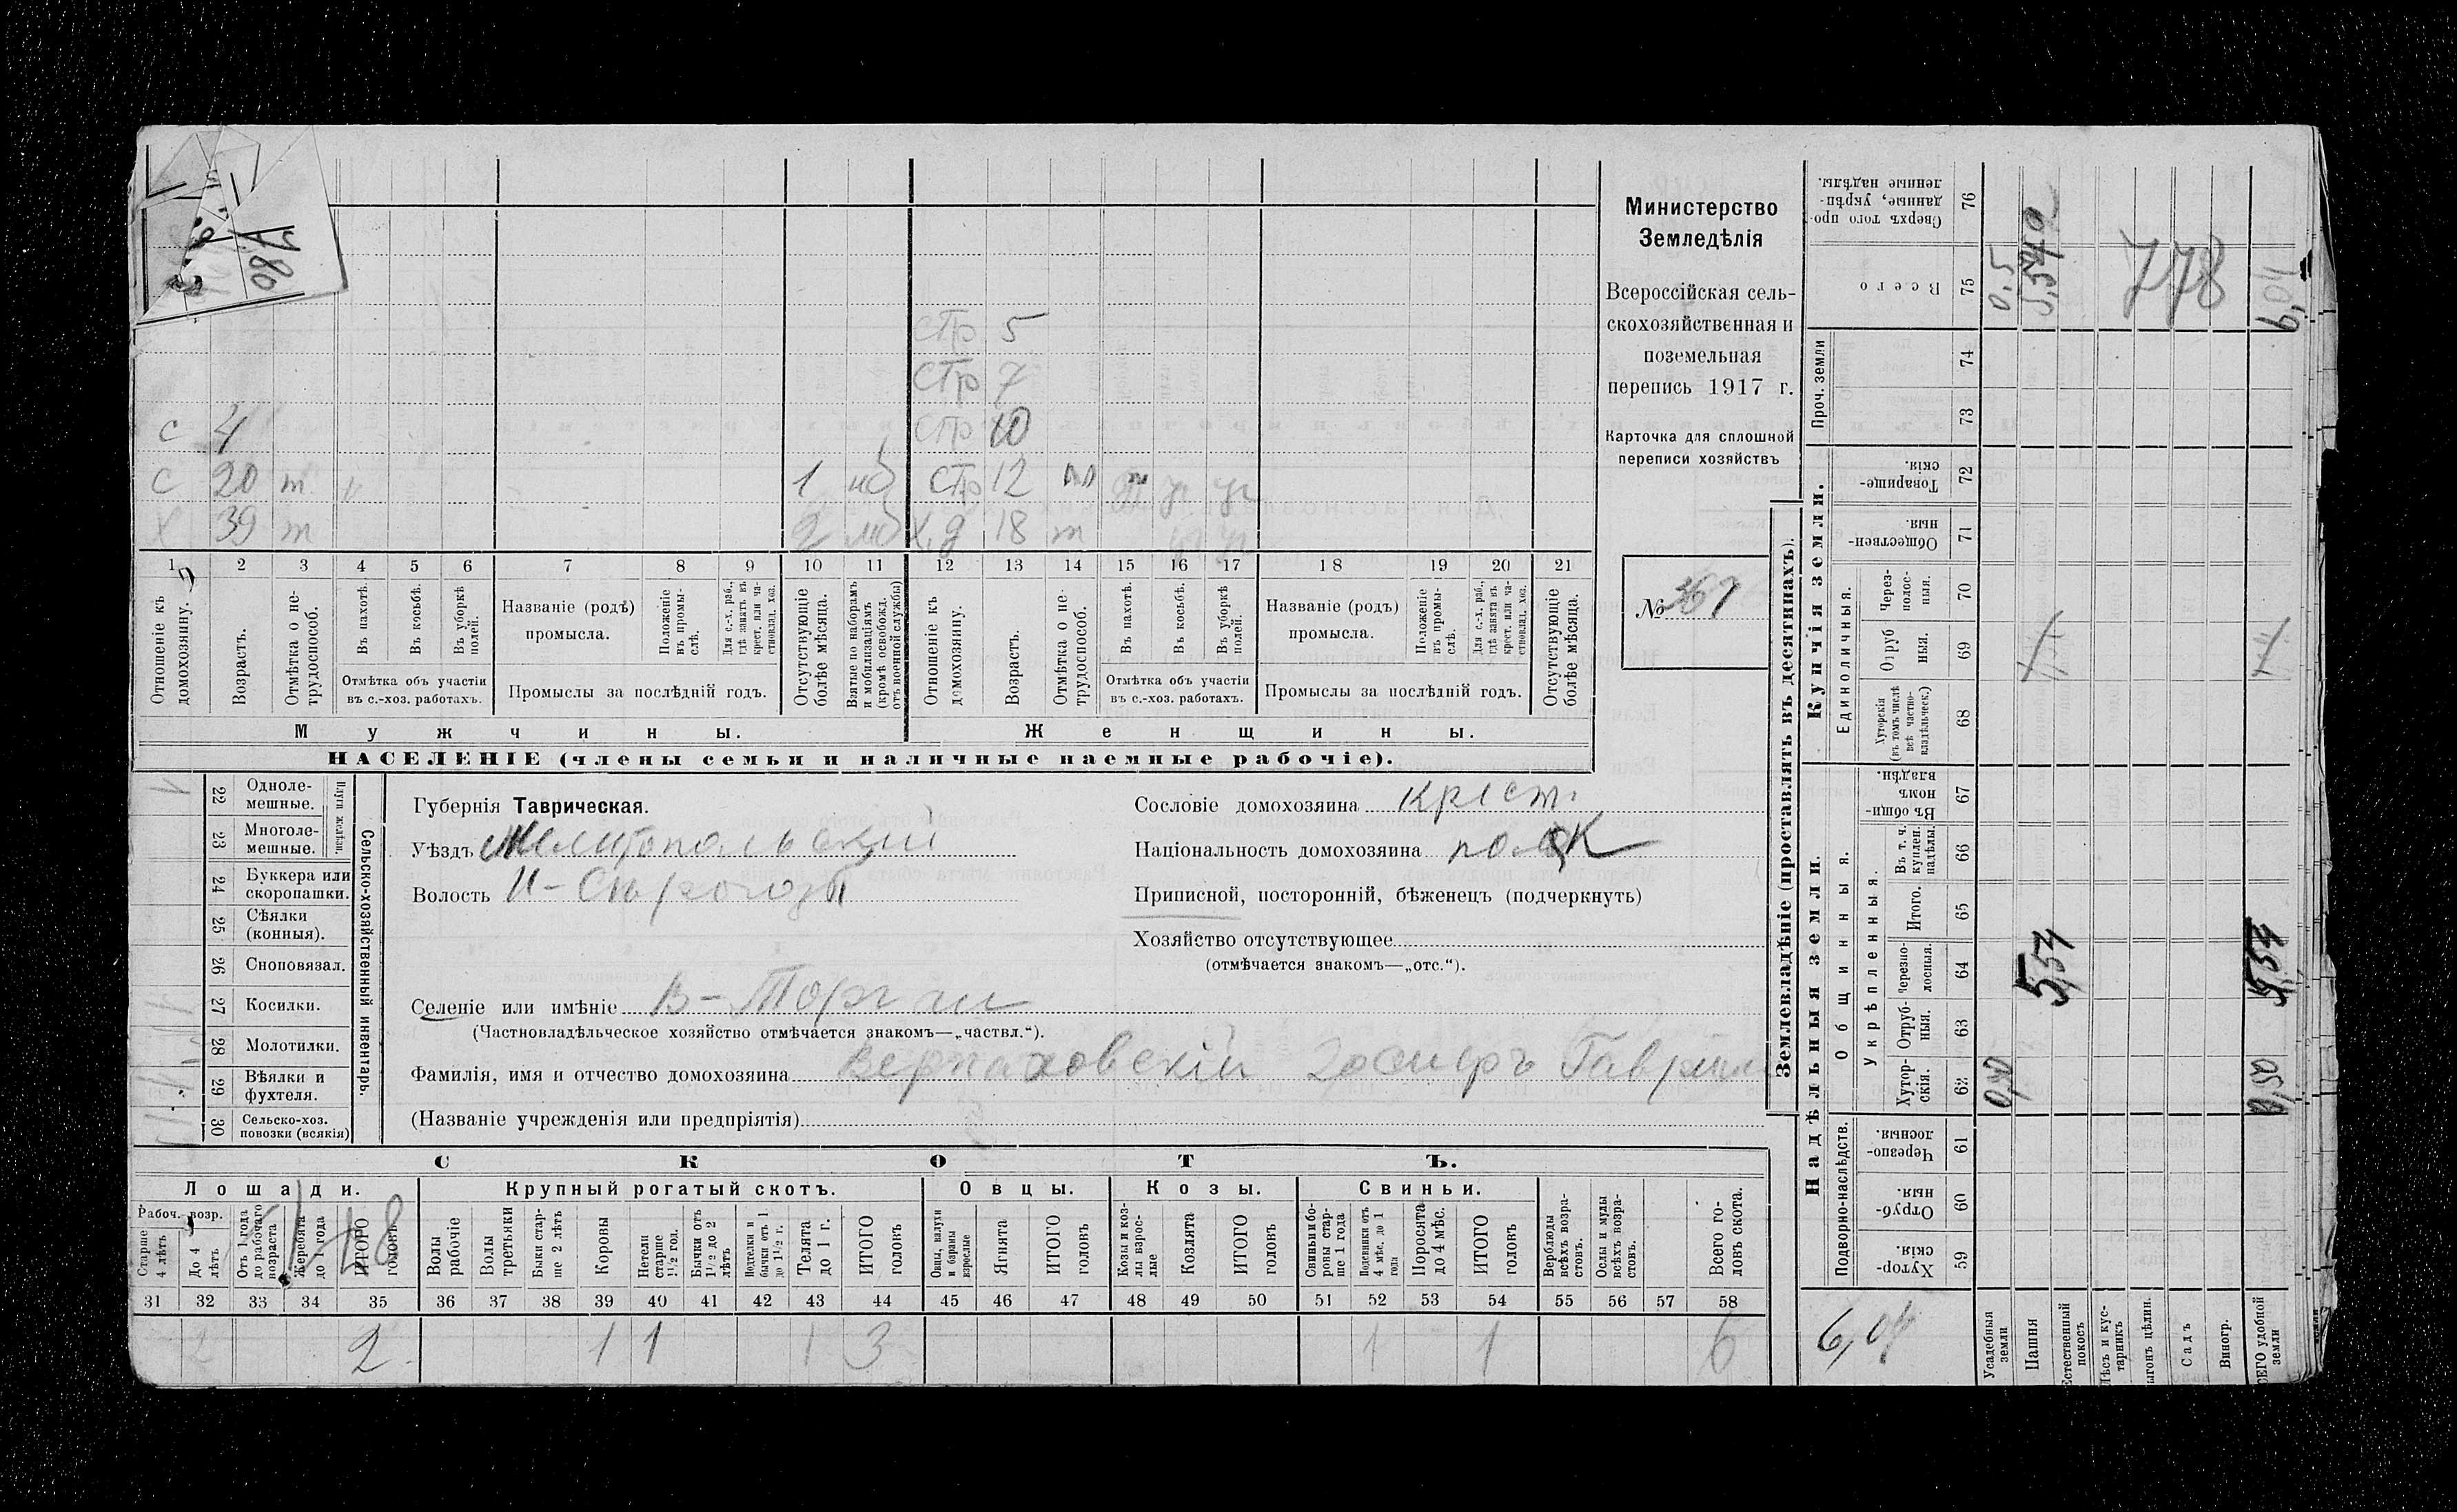 Министерство
Земледѣлія
Всероссійская сель-
скохозяйственная и
поземельная
перепись 1917 г.
Карточка для сплошной
переписи хозяйствъ
№ 367
780
стр 5
стр 7
с 4 стр 10
с 20 т 1 мб стр 12
х 39 т 2 мб х.д 18 т
1 2 3 4 5 6 7 8 9 10 11 12 13 14 15 16 17 18 19 20 21
Отношеніе къ домохозяину.
Возрастъ.
Отмѣтка о не-трудоспособ.
Въ пахотѣ.
Въ косьбѣ.
Въ уборкѣ полей.
Отмѣтка объ участіи
въ с.-хоз. работахъ.
Названіе (родъ)
промысла.
Положеніе въ промы-слѣ.
Для с.-х. раб., гдѣ занятъ въ крест. или ча-стновлад. хоз.
Промыслы за послѣдній годъ.
Отсутствующіе болѣе мѣсяца.
Взятые по наборамъ и мобилизаціямъ (кромѣ освобожд. отъ военной службы)
Отношеніе къ домохозяину.
Возрастъ.
Отмѣтка о не-трудоспособ.
Въ пахотѣ.
Въ косьбѣ.
Въ уборкѣ полей.
Отмѣтка объ участіи
въ с.-хоз. работахъ.
Названіе (родъ)
промысла.
Положеніе въ промы-слѣ.
Для с.-х. раб., гдѣ занята въ крест. или ча-стновлад. хоз.
Промыслы за послѣдній годъ.
Отсутствующіе болѣе мѣсяца.
Мужчины.
Женщины.
НАСЕЛЕНІЕ (члены семьи и наличные наемные рабочіе).
22 Одноле-мешные.
23 Многоле-мешные.
24 Буккера или скоропашки.
25 Сѣялки (конныя).
26 Сноповязал.
27 Косилки.
28 Молотилки.
29 Вѣялки и фухтеля.
30 Сельско-хоз. повозки (всякія)
Сельско-хозяйственный инвентарь.
Губернія Таврическая.
Уѣздъ Мелитопольский
Волость Н-Сѣрогозы
Сословіе домохозяина крест.
Національность домохозяина поляк
Приписной, посторонній, бѣженецъ (подчеркнуть)
Хозяйство отсутствующее
(отмѣчается знакомъ—„отс.“).
Селеніе или имѣніе В-Торгаи
(Частновладѣльческое хозяйство отмѣчается знакомъ—„частвл.“).
Фамилія, имя и отчество домохозяина
(Названіе учрежденія или предпріятія)
СКОТЪ.
Лошади.
Крупный рогатый скотъ.
Овцы.
Козы.
Свиньи.
Рабоч. возр.
Старше 4 лѣтъ
До 4 лѣтъ
Отъ 1 года до рабочаго возраста
Жеребята до 1 года
ИТОГО головъ
Волы рабочіе
Волы третьяки
Быки стар-ше 2 лѣтъ
Коровы
Нетели старше 1½ год.
Бычки отъ 1½ до 2 лѣтъ
Подтелки и бычки отъ 1 до 1½ г.
Телята до 1 г.
ИТОГО головъ
Овцы, валухи и бараны взрослые
Ягнята
ИТОГО головъ
Козы и коз-лы взрос-лые
Козлята
ИТОГО головъ
Свиньи и бо-ровы стар-ше 1 года
Подсвинки отъ 4 мѣс. до 1 года
Поросята до 4 мѣс.
ИТОГО головъ
Верблюды всѣхъ возра-стовъ.
Ослы и мулы всѣхъ возра-стовъ.
Всего го-ловъ скота.
31 32 33 34 35 36 37 38 39 40 41 42 43 44 45 46 47 48 49 50 51 52 53 54 55 56 57 58
2 2 1 1 1 3 1 1 6
Землевладѣніе (проставлять въ десятинахъ).
Надѣльныя земли.
Купчія земли.
Проч. земли
Подворно-наслѣдств.
Общинныя.
Укрѣпленныя.
Единоличныя.
59 Хутор-скія.
60 Отруб-ныя.
61 Черезпо-лосныя.
62 Хутор-скія.
63 Отруб-ныя.
64 Черезпо-лосныя.
65 Итого.
66 Въ т. ч. куплен. надѣлы.
67 Въ общи-номъ владѣн.
68 Хуторскія (въ томъ числѣ всѣ частно-владѣльческ.)
69 Отруб ныя.
70 Через-полос-ныя.
71 Обществен-ныя.
72 Товарище-скія.
73
74
75 Всего
76 Сверхъ того про-данные, укрѣп-ленные надѣлы.
Усадебныя земли
Пашня
Естественный покосъ
Лѣсъ и кус-тарникъ
Выгонъ цѣлин.
Садъ
Виногр.
ВСЕГО удобной земли
0,5
778
5,54
5,54
0,50
0,50
6,04